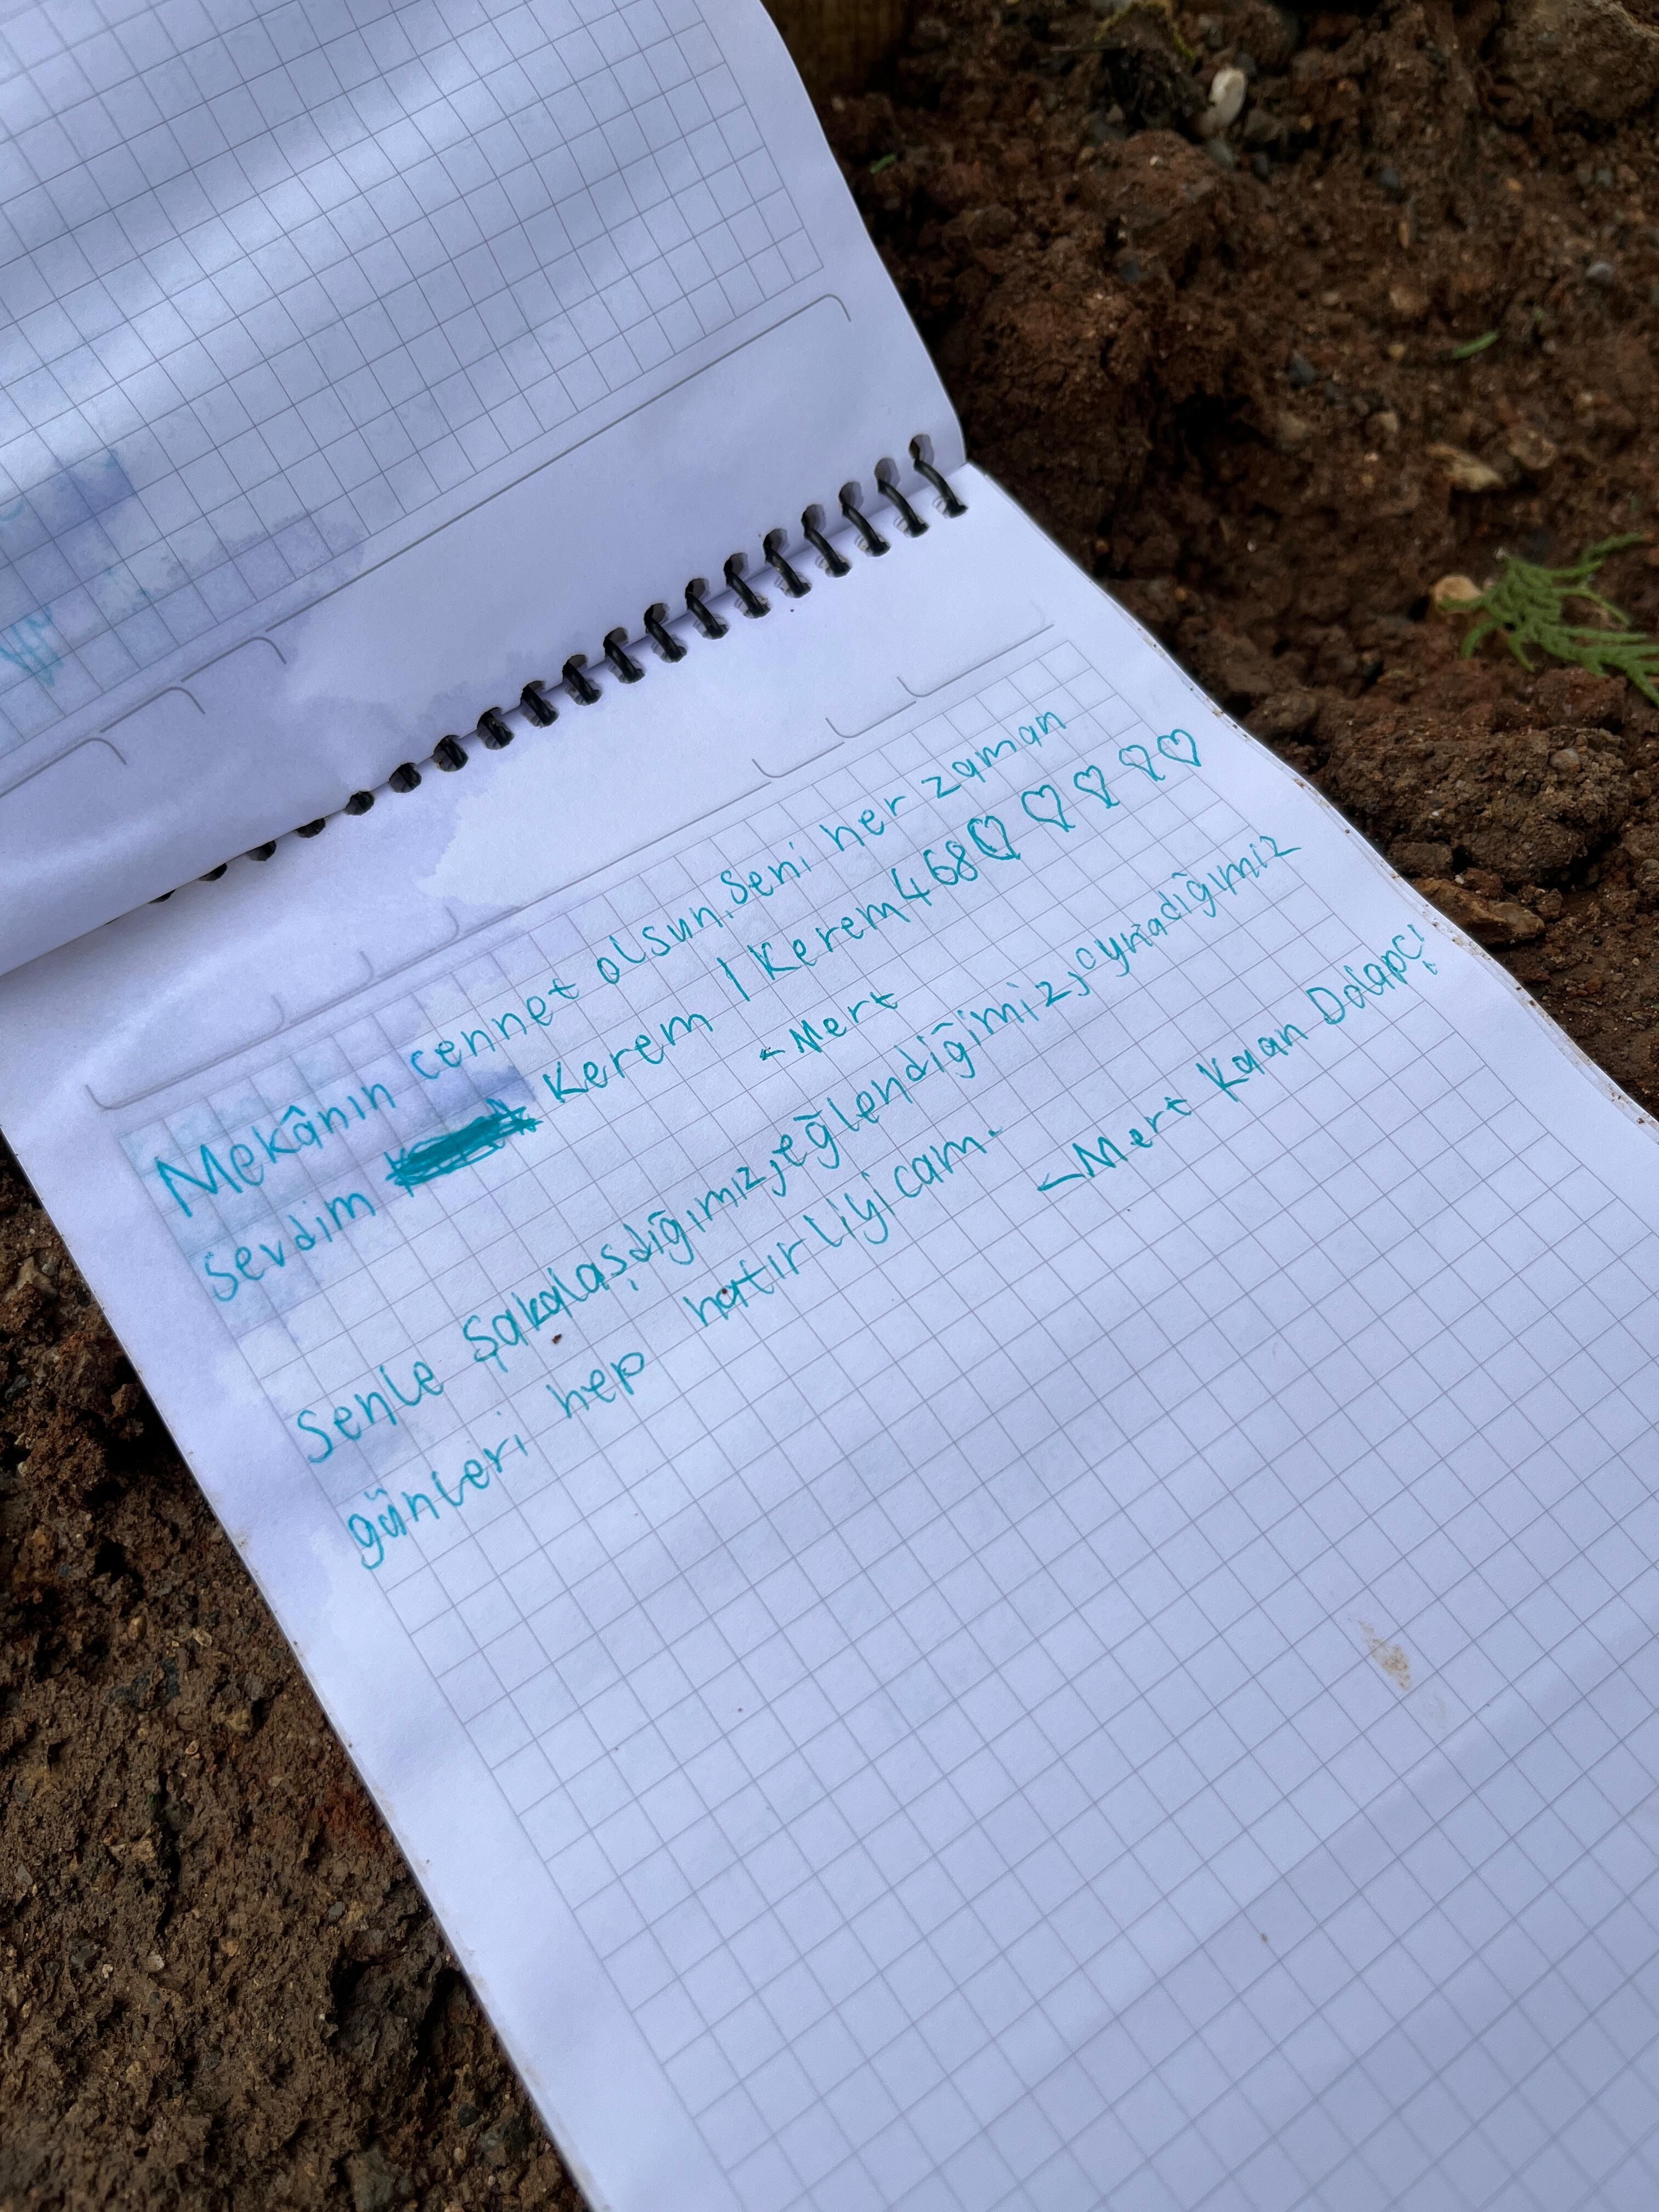 Mekânın cennet olsun. Seni her zaman
sevdim Kerem / Kerem468♡ ♡ ♡ ♡ ♡
-Mert
Senle şakalaşdığımız, eğlendiğimiz, oynadığımız
günleri hep hatırliyicam.
-Mert Kaan Dolapçı